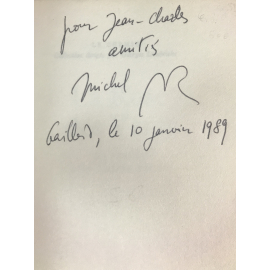 pour Jean-Charles
amitiés
Michel
, le 10 janvier 1989